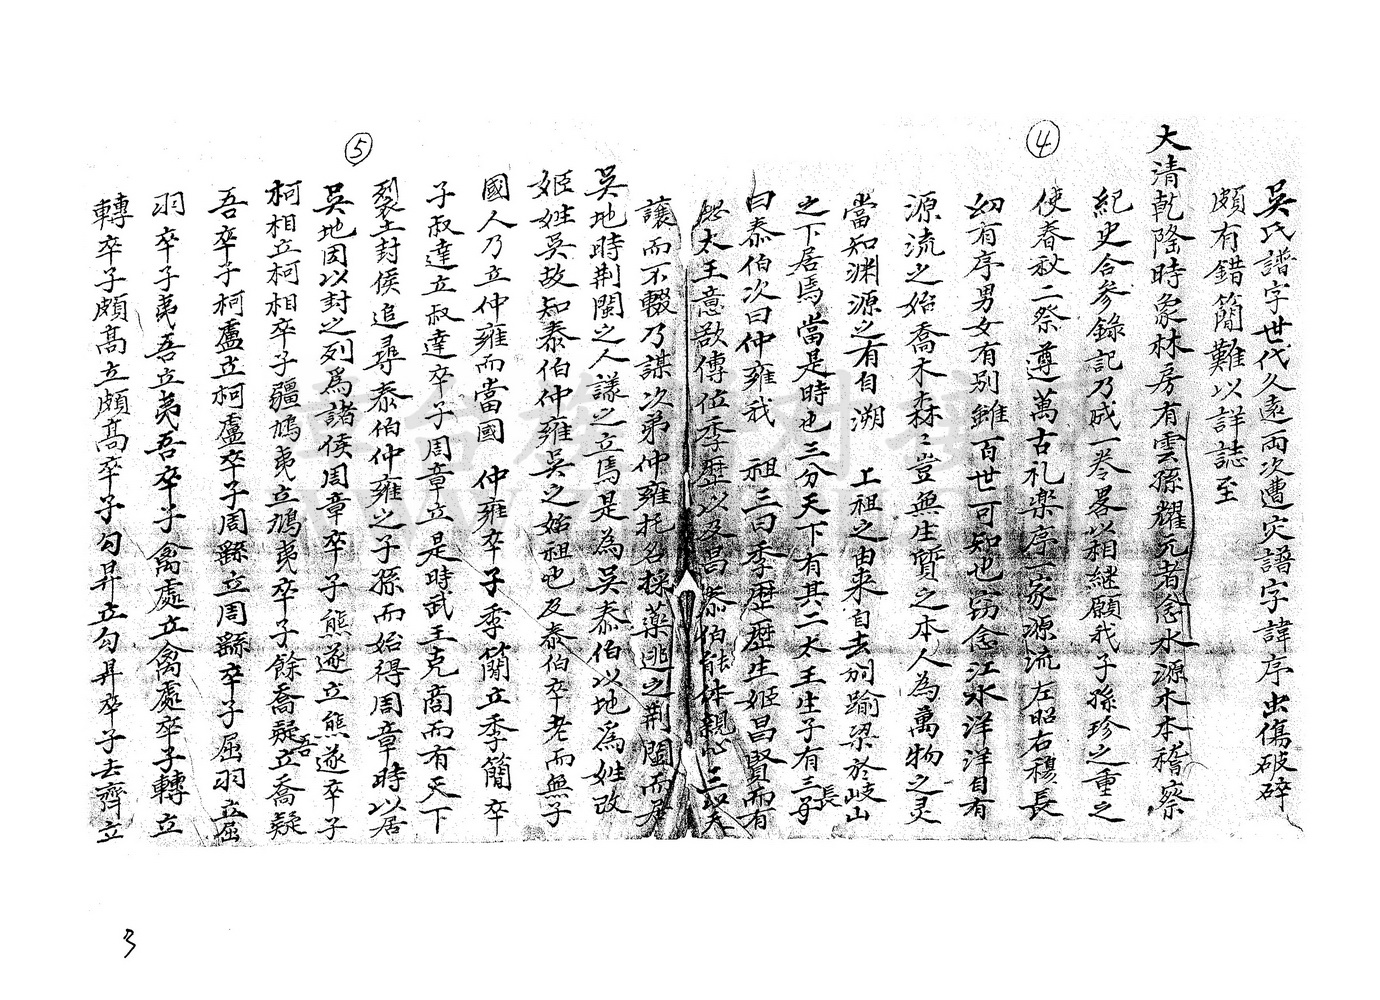 ④
吳氏譜字世代久遠兩次遭灾譜字諱序虫傷破碎
頗有錯簡難以詳誌至
大清乾隆時象林房有雲孫耀元者念水源木本稽察
紀史合參錄記乃成一卷畧以相繼願我子孫珍之重之
使春秋二祭尊遵萬古礼樂序一家源流左昭右穆長
幼有序男女有別雖百世可知也窃念江水洋洋自有
源流之始喬木森〻豈無生質之本人為萬物之灵
當知淵源之有自溯 上祖之由来自去邠踰梁於岐山
之下居焉當是時也三分天下有其二太王生子有三長
曰泰伯次曰仲雍我 祖三曰季歷歷生姬昌賢而有
太王意欲傳位季歷以及昌泰伯能体親心三以天
⑤
讓而不輟乃謀次弟仲雍托名採薬逃之荆闽而居
吳地時荆閩之人議之立焉是為吳泰伯以地為姓改
姬姓吳故知泰伯仲雍吳之始祖也及泰伯卒老而無子
國人乃立仲雍而當國 仲雍卒子季簡立季簡卒
子叔達立叔達卒子周章立是時武王克商而有天下
裂土封侯追尋泰伯仲雍之子孫而始得周章時以居
吳地因以封之列爲諸侯周章卒子熊遂立熊遂卒子
柯相立柯相卒子疆鳩夷立鳩夷卒子餘喬疑吾立喬疑
吾卒子柯盧立柯盧卒子周繇立周繇卒子屈羽立屈
羽卒子夷吾立夷吾卒子禽處立禽處卒子轉立
轉卒子頗高立頗高卒子勾昇立勾昇卒子去齊立
3